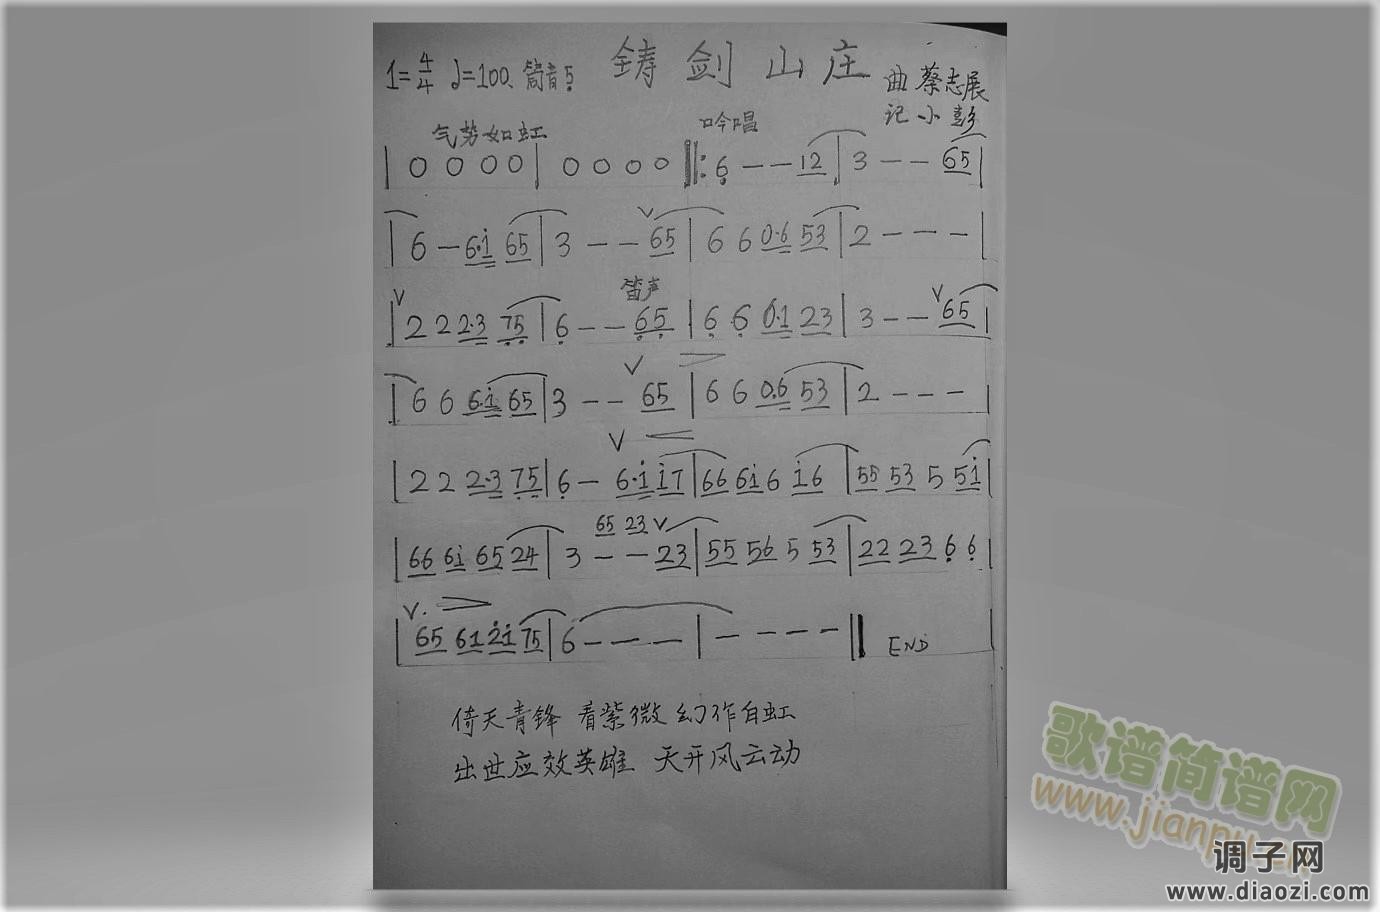 铸剑山庄
1=4/4 ♩=100、筒音5̣
曲 蔡志展
记 小彭
气势如虹 吟唱
| 0 0 0 0 | 0 0 0 0 ‖: 6̣ - - 12 | 3 - - 65 |
| 6 - 6·i 65 | 3 - - ∨ 65 | 6 6 0·6 53 | 2 - - - |
笛声
∨ | 2 2 2·3 7̣5̣ | 6̣ - - 6̣5̣ | 6̣ 6̣ 0·1 23 | 3 - - ∨ 65 |
| 6 6 6·i 65 | 3 - - ∨ 65 | 6 6 0·6 53 | 2 - - - |
| 2 2 2·3 7̣5̣ | 6̣ - ∨ 6·i i7 | 66 6i 6 i6 | 55 53 5 5i |
65 23 ∨
| 66 6i 65 24 | 3 - - 23 | 55 56 5 53 | 22 23 6̣ 6̣ |
∨ >
| 65 61 2i 75 | 6 - - - | - - - - ‖ END
倚天青锋 看紫微幻作白虹
出世应效英雄 天开风云动
歌谱简谱网
www.jianpu.cn
调子网
www.diaozi.com